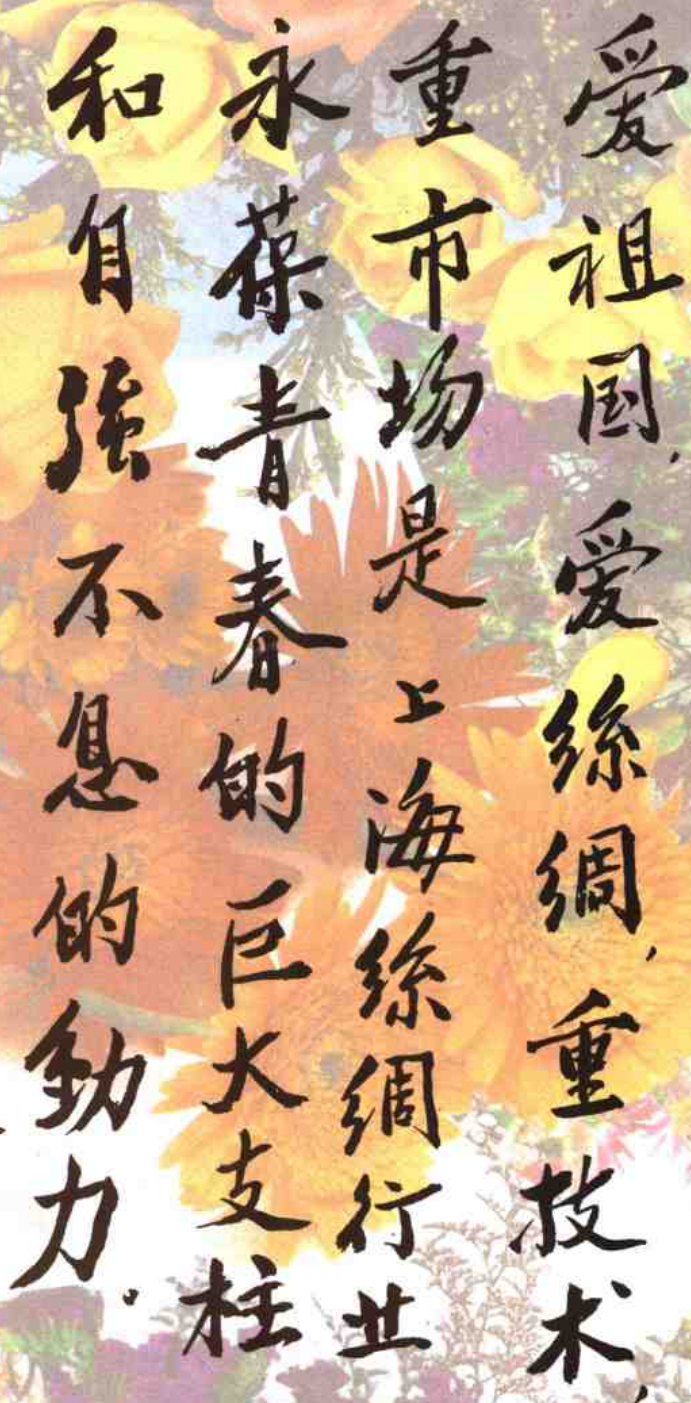 爱祖国,爱絲綢,重技术,
重市场是上海絲綢行业
永葆青春的巨大支柱
和自強不息的動力。